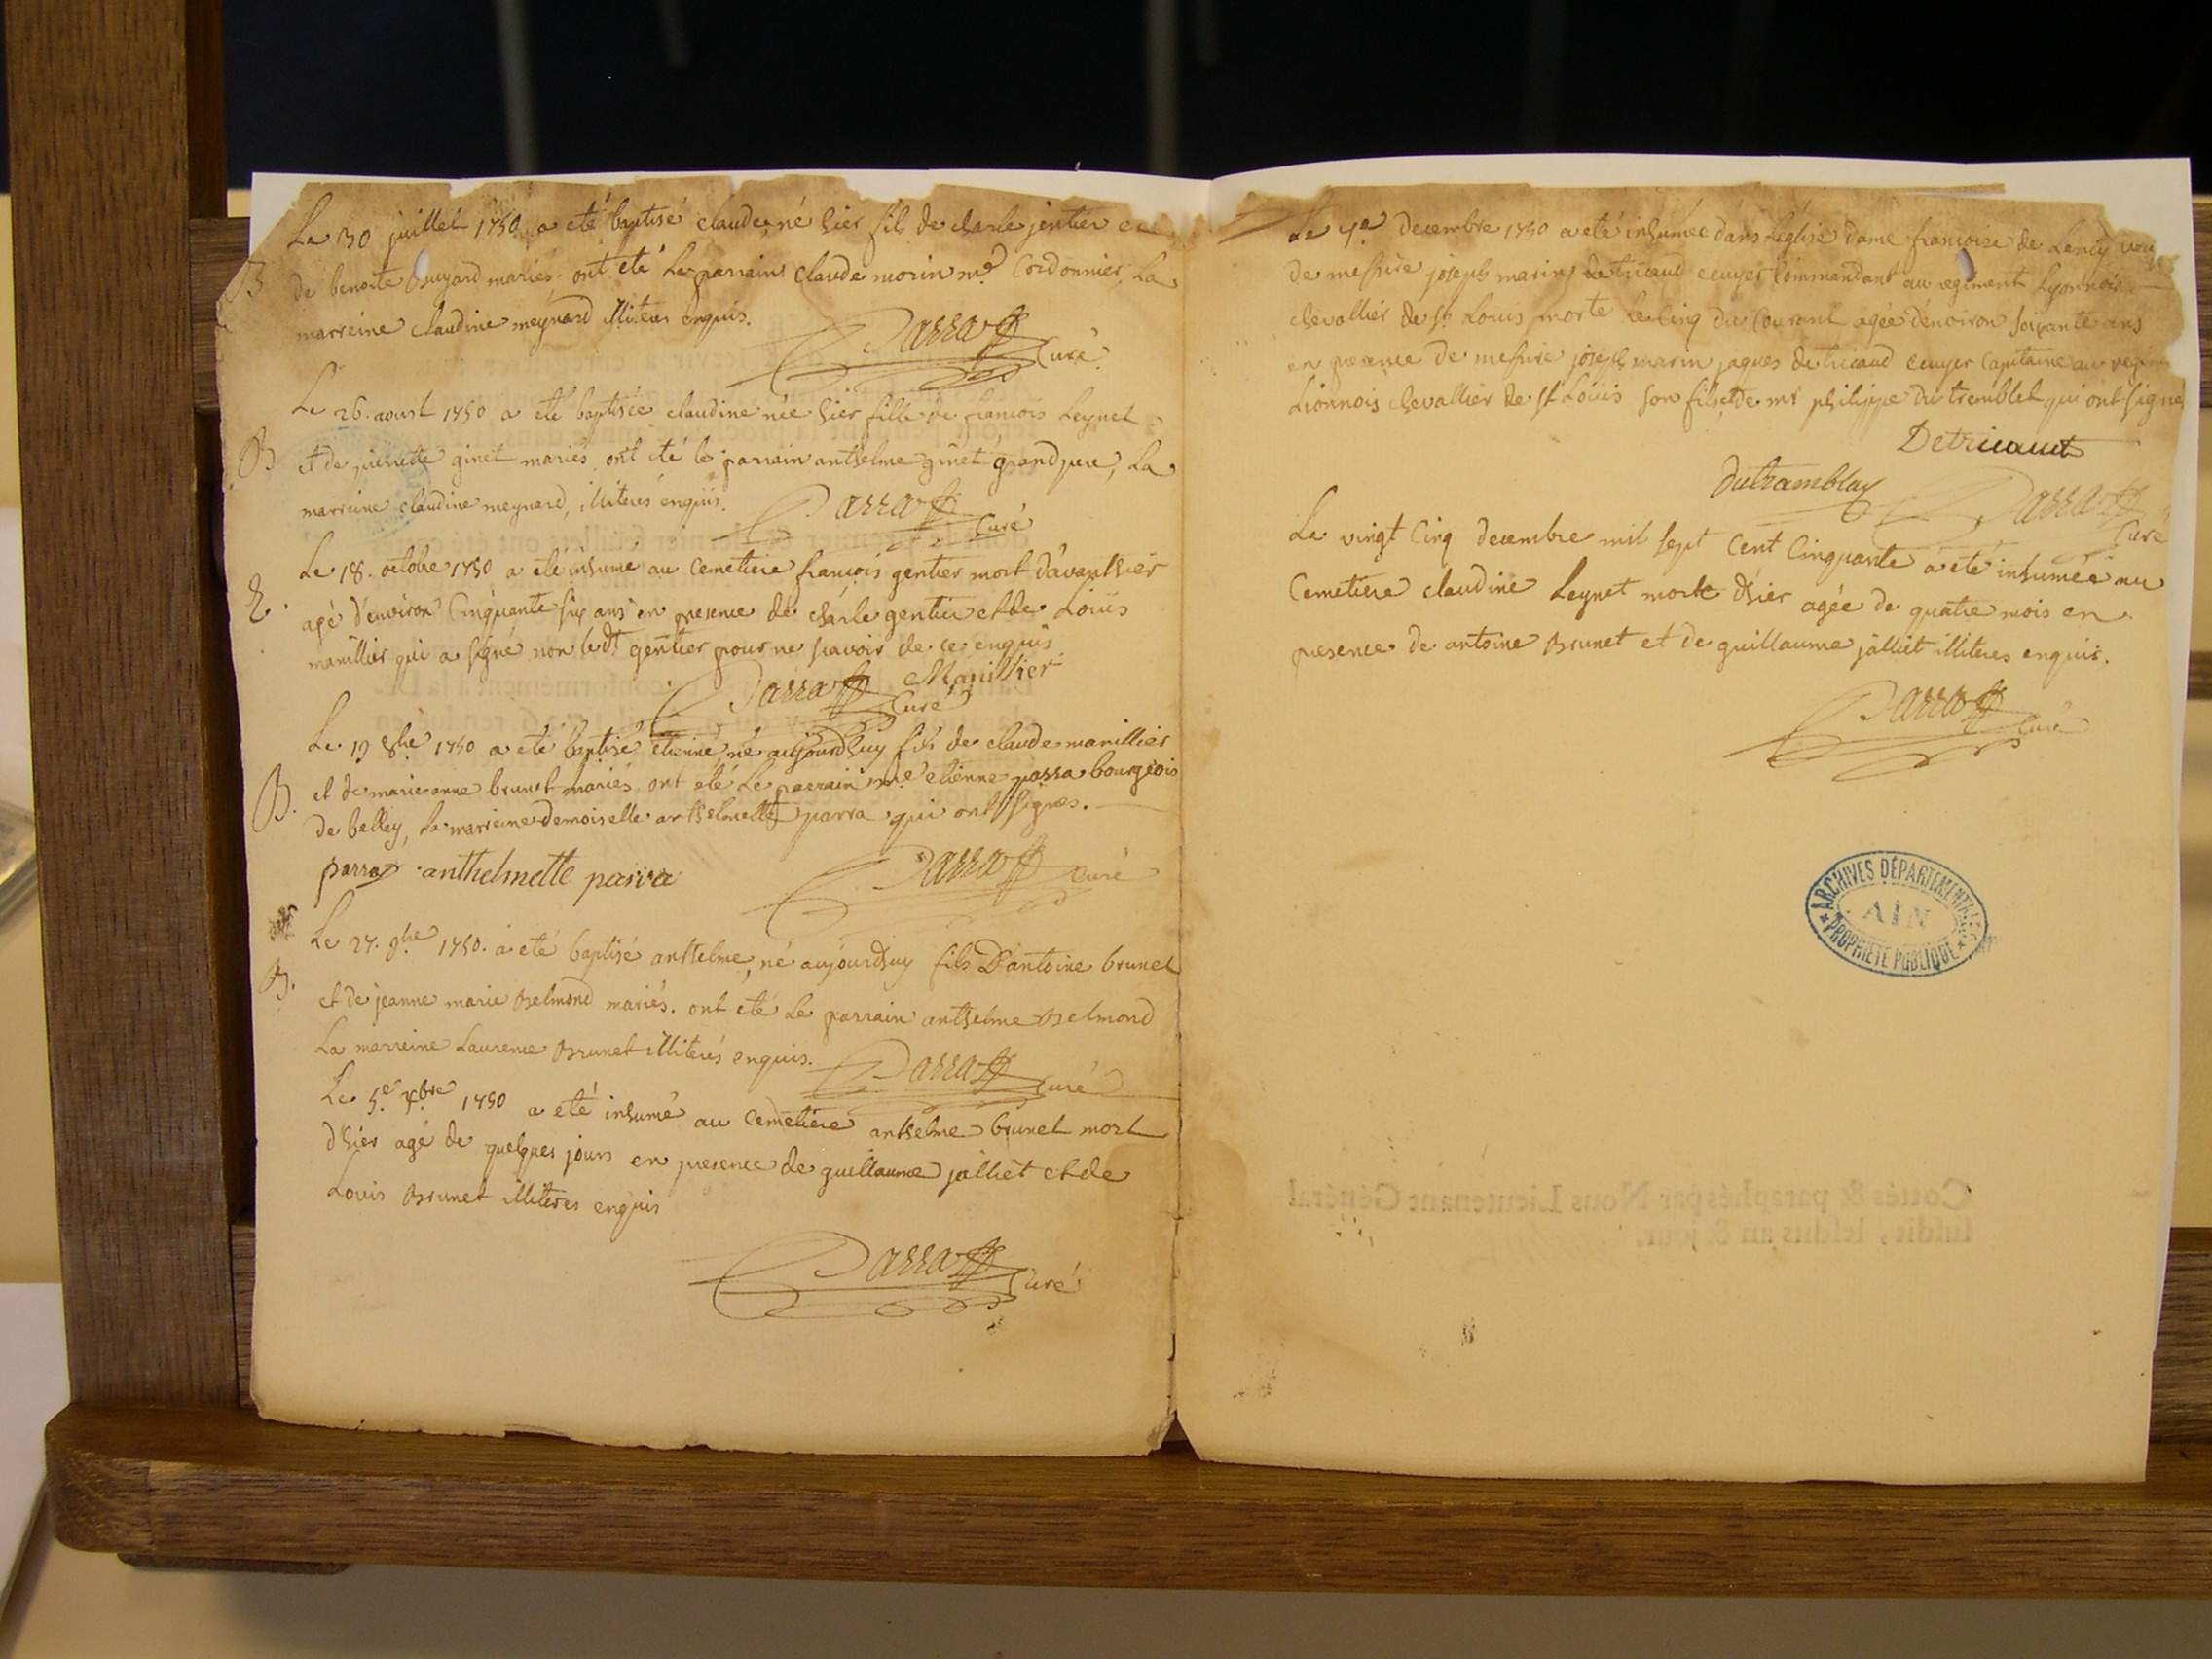 Le 30 juillet 1750 a eté baptisé claude, né hier fils de charle jentier et
B de benoite Buyard mariés. ont eté Le parrain Claude morin md Cordonnier, La
marreine claudine meynard illiteres enquis.
Parra Curé
Le 26. aoust 1750 a eté baptisée claudine née hier fille de francois Leynet
B et de pierrette ginet mariés, ont été le parrain anthelme ginet grand pere, La
marreine claudine meynard, illiterés enquis.
Parra Curé
Le 18. octobre 1750 a eté inhumé au Cemetiere françois gentier mort d'avanthier
E. agé d'environ Cinquante six ans en presence de charle gentier et de Loüis
manillier qui a signé non ledt gentier pour ne scavoir de ce enquis
Parra Curé Manillier
Le 19 8bre 1750 a eté baptisé etienne, né aujourdhuy fils de claude manillier
B. et de marie anne brunet mariés, ont eté Le parrain me etienne parra bourgeois
de belley, La marreine demoiselle anthelmette parra qui ont signes.
parra anthelmette parra Parra Curé
Le 27. 9bre 1750. a eté baptisé anthelme, né aujourdhuy fils D'antoine brunet
B. et de jeanne marie Belmond mariés. ont été Le parrain anthelme Belmond
La marreine Laurence Brunet illiterés enquis.
Parra Curé
Le 5e xbre 1750 a eté inhumé au Cemetiere anthelme brunet mort
d'hier agé de quelques jours en presence de guillaume jalliet et de
Louis Brunet illiteres enquis
Parra Curé
Le 7e decembre 1750 a eté inhumée dans Léglise dame francoise de Lency
de messire joseph marin de tricaud ecuyer Commandant au regiment Lyonnois
chevallier de st Louis morte Le Cinq du Courant agée denviron soixante ans
en presence de messire joseph marin jaques de tricaud ecuyer Capitaine au
Lionnois chevallier de st Loüis son fils, et de mr philippe du tremblet qui ont signé
Detricaud
Dutramblay Parra Curé
Le vingt Cinq decembre mil sept Cent Cinquante a eté inhumée au
Cemetiere claudine Leynet morte d'hier agée de quatre mois en
presence de antoine Brunet et de guillaume jalliet illiteres enquis.
Parra Curé
ARCHIVES DÉPARTEMENTALES
AIN
PROPRIÉTÉ PUBLIQUE
Cottés & paraphés par Nous Lieutenant Général
susdit, lesdits an & jour.